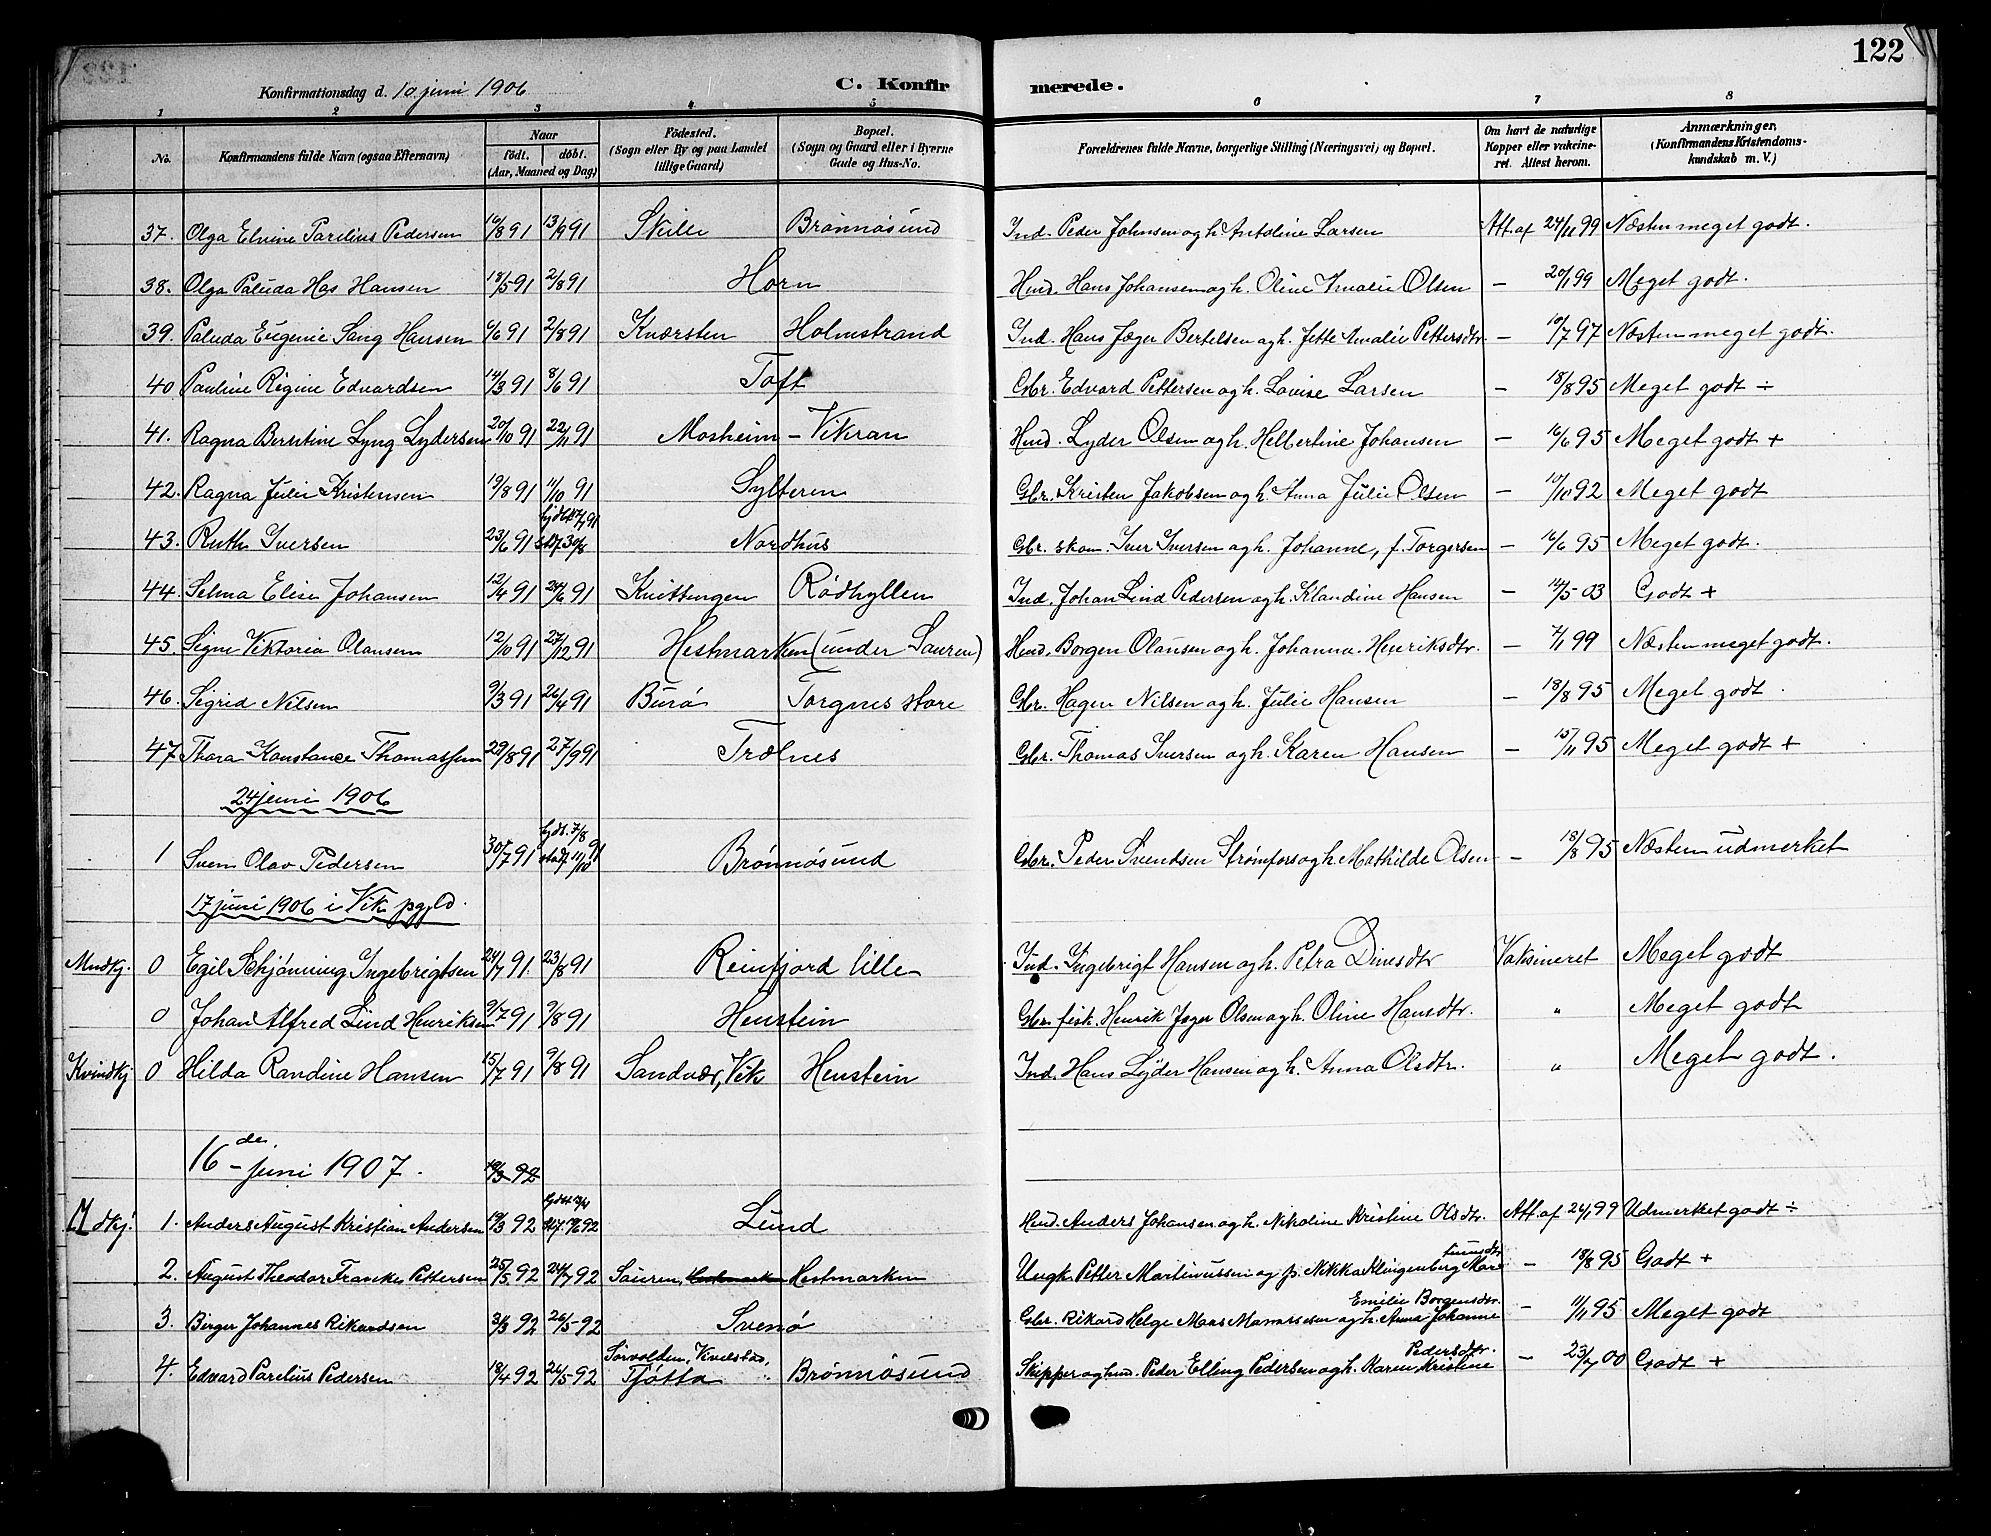 122
Konfirmationsdag d. 10 juni 1906
C. Konfirmerede.
1 2 3 4 5 6 7 8
No. Konfirmandens fulde Navn (ogsaa Efternavn) Naar født. døbt. (Aar, Maaned og Dag) Fødested. (Sogn eller By og paa Landet tillige Gaard) Bopæl. (Sogn og Gaard eller i Byerne Gade og Hus-No. Forældrenes fulde Navne, borgerlige Stilling (Næringsvei) og Bopæl. Om havt de naturlige Kopper eller vakcineret. Attest herom. Anmærkninger. (Konfirmandens Kristendomskundskab m. V.)
37. Olga Elvine Parelius Pedersen 16/8 91 13/9 91 Skille Brønnøsund Ind. Peder Johnsen og h. Antoline Larsen Att. af 24/11 99 Næsten meget godt.
38. Olga Paluda Has Hansen 18/5 91 2/8 91 Horn Hmd. Hans Johansen og h. Oline Amalie Olsen — 20/1 99 Meget godt.
39. Paluda Eugenie Sang Hansen 6/6 91 2/8 91 Kværsten Holmstrand Ind. Hans Jæger Bertelsen og h. Jette Amalie Pettersdtr. — 10/7 97 Næsten meget godt.
40 Pauline Regine Edvardsen 14/3 91 8/6 91 Toft Gbr. Edvard Pettersen og h. Lovise Larsen — 18/8 95 Meget godt ÷
41. Ragna Berntine Lyng Lydersen 20/10 91 22/11 91 Mosheim – Vikran Hmd. Lyder Olsen og h. Helbertine Johansen — 16/6 95 Meget godt +
42. Ragna Julie Kristensen 19/8 91 11/10 91 Sylteren Gbr. Kristen Jakobsen og h. Anna Julie Olsen — 10/10 92 Meget godt
43. Ruth Iversen 23/6 91 stadf. 30/8 Nordhus Gbr. skom. Iver Iversen og h. Johanne, f. Torgersen — 16/6 95 Meget godt.
44. Selma Elise Johansen 12/4 91 24/6 91 Knittingen Rødhyllen Ind. Johan Lind Pedersen og h. Klandine Hansen — 14/5 03 Godt +
45. Signe Viktoria Olausen 12/10 91 27/12 91 Hestmarken (under Sauren) Hmd. Borgen Olausen og h. Johanna Henriksdtr. — 7/1 99 Næsten meget godt.
46. Sigrid Nilsen 9/3 91 26/4 91 Burø Torgnes store Gbr. Hagen Nilsen og h. Julie Hansen — 18/8 95 Meget godt.
47. Thora Konstance Thomassen 29/8 91 27/9 91 Trælnes Gbr. Thomas Iversen og h. Karen Hansen — 15/11 95 Meget godt +
24 juni 1906
1 Sven Olav Pedersen 30/7 91 hjdt. 7/8 91 stadf. 11/10 Brønnøsund Gbr. Peder Svendsen Strømfors og h. Mathilde Olsen — 18/8 95 Næsten udmerket
17 juni 1906 i Vik pgld.
Mndkj. 0 Egil Schjønning Ingebrigtsen 24/7 91. 23/8 91 Reinfjord lille Ind. Ingebrigt Hansen og h. Petra Dinesdtr Vaksineret Meget godt
0 Johan Alfred Lind Henriksen 9/7 91 9/8 91 Henstein Gbr. fisk. Henrik Jæger Olsen og h. Oline Hansdtr. " Meget godt
Kvindkj 0 Hilda Randine Hansen 15/7 91 9/8 91 Sandvær, Vik Henstein Ind. Hans Lyder Hansen og h. Anna Olsdtr. " Meget godt.
16de juni 1907.
Mdkj. 1. Anders August Kristian Andersen 19/3 92 Lund Hmd. Anders Johansen og h. Nikoline Kristine Olsdtr. Att. af 26/1 99 Udmerket godt ÷
2. August Theodor Francke Pettersen 25/5 92 24/7 92 Sauren, Hestmarken Ungk. Petter Martinussen og p. Nikka Klingenberg — 18/8 95 Godt +
3. Birger Johannes Rikardsen 3/3 92 26/5 92 Svenø Gbr. Rikard Helge Maas Manassesen og h. Anna Johanne Emilie Borgensdtr. — 11/11 95 Meget godt
4. Edvard Parelius Pedersen 18/4 92 26/5 92 Sørvolden, Tjøtta Brønnøsund Skipper og hmd. Peder Elling Pedersen og h. Karen Kristine Pedersdtr. — 23/4 00 Godt +